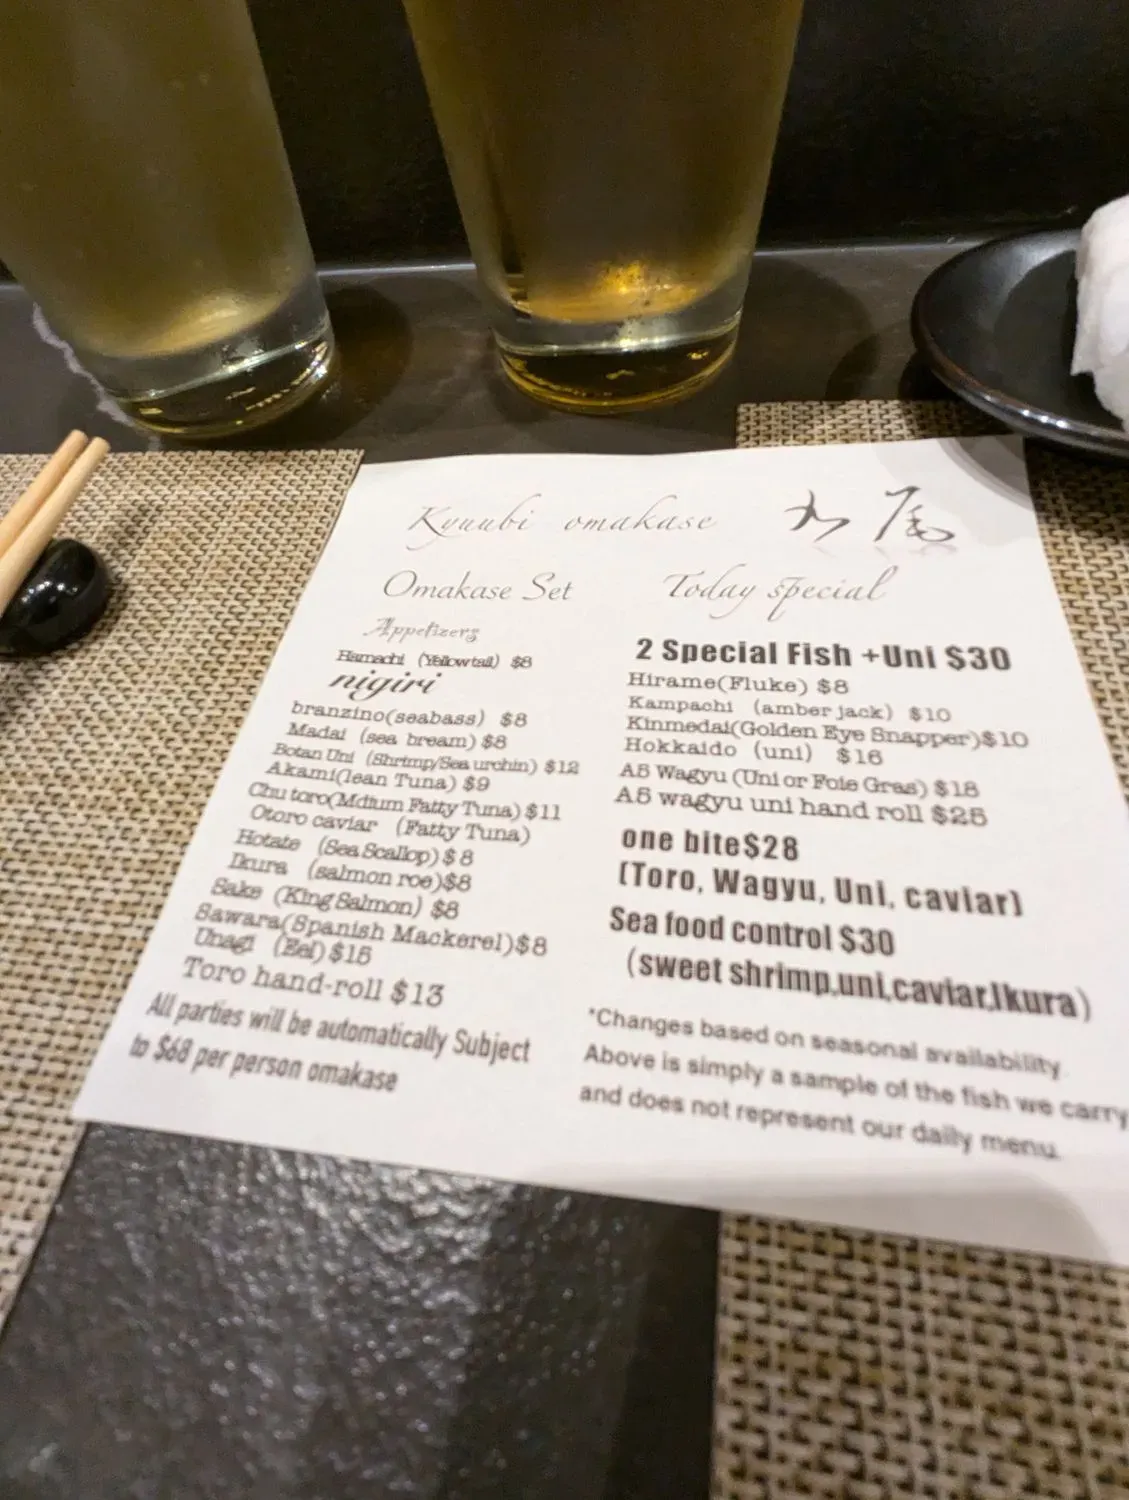 Kyuubi omakase 九尾
Omakase Set
Appetizers
Hamachi (Yellowtail) $8
nigiri
branzino(seabass) $8
Madai (sea bream) $8
Botan Uni (Shrimp/Sea urchin) $12
Akami(lean Tuna) $9
Chu toro(Mdium Fatty Tuna) $11
Otoro caviar (Fatty Tuna)
Hotate (Sea Scallop) $8
Ikura (salmon roe)$8
Sake (King Salmon) $8
Sawara(Spanish Mackerel)$8
Unagi (Eel) $15
Toro hand-roll $13
All parties will be automatically Subject
to $68 per person omakase
Today special
2 Special Fish +Uni $30
Hirame(Fluke) $8
Kampachi (amber jack) $10
Kinmedai(Golden Eye Snapper)$10
Hokkaido (uni) $16
A5 Wagyu (Uni or Foie Gras) $18
A5 wagyu uni hand roll $25
one bite$28
(Toro, Wagyu, Uni, caviar)
Sea food control $30
(sweet shrimp,uni,caviar,Ikura)
*Changes based on seasonal availability.
Above is simply a sample of the fish we carry
and does not represent our daily menu.